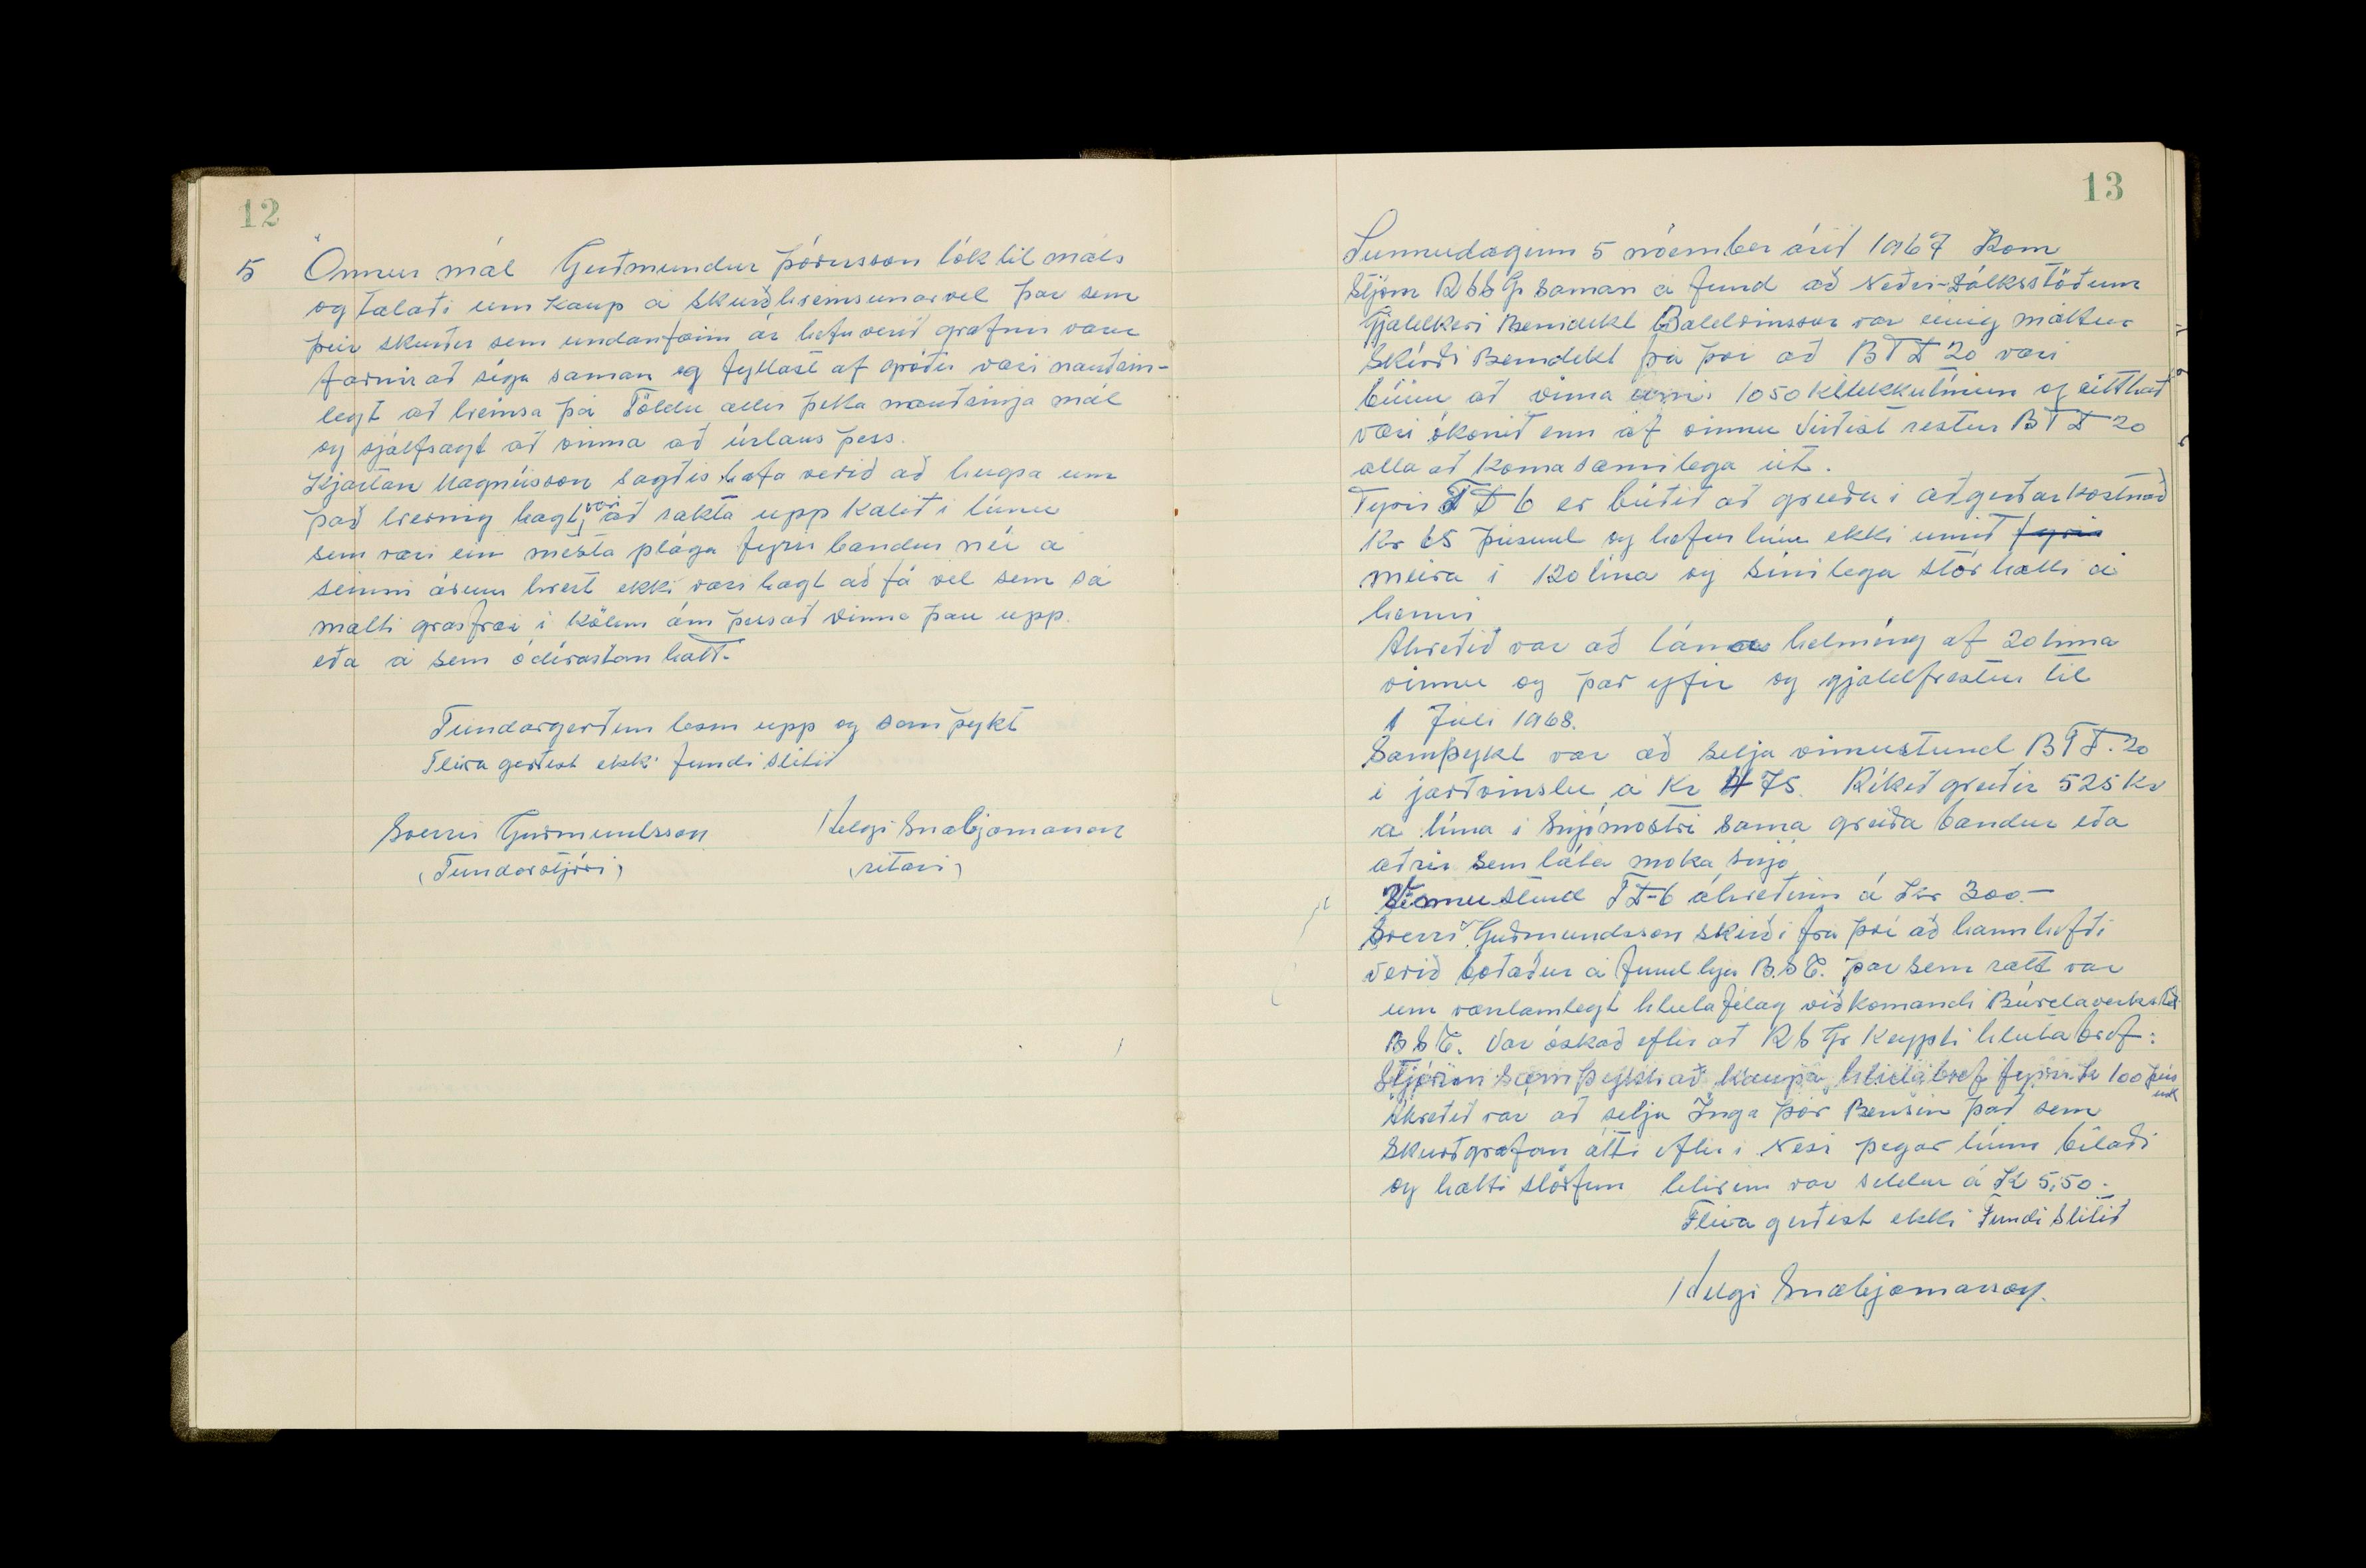 12
5 Önnur mál Guðmundur Þórusson tók til máls
og talaði um kaup á skurðhreinsunarvél þar sem
þeir skurðir sem undanfarin ár hefu verið grafnir væru
farnir að síga saman og fyllast af gróðri væri nauðsin-
legt að hreinsa þá Töldu allir þetta nauðsinja mál
og sjálfsagt að vinna að úrlaus þess.
Kjartan Magnússon sagðis hafa verið að hugsa um
það hvernig hagt væri að rækta upp kalið í túnu
sem væri ein mesta plága fyrir bændur nú á
seinni árum hvert ekki væri hagt að fá vél sem sá
mætti grasfræi í kölin án þess að vinna þau upp.
eða á sem ódírastan hátt.
Fundargerðin lesin upp og samþykt
Fleira gerðist ekki fundi slitið
Sverrir Guðmundsson Helgi Snæbjarnarson
(Fundarstjóri) (ritari)
13
Sunnudaginn 5 nóember árið 1967 Kom
Stjórn RSSÞ saman á fund að Neðri-Dálksstöðum
Gjaldkeri Benidikt Baldvinsson var einig mættur
Skírði Benidikt frá því að BTD 20 væri
búin að vinna 1050 klukkutímum og eitthvað
væri ókomið inn af vinnu Virtist restur BTD 20
ætla að koma sæmilega út.
Fyrir TD 6 er búið að greiða í aðgerðarkostnað
Kr 65 þúsund og hefur hún ekki unnið fyrir
meira í 120 tíma og sínilega stór halli á
henni
Ákveðið var að lána helming af 20 tíma
vinnu og þar yfir og gjaldfrestur til
1 Júlí 1968.
Samþykt var að selja vinnustund BTD. 20
í jarðvinslu á Kr 475. Ríkið greiðir 525 Kr
á tíma í snjómostri sama greiða bændur eða
aðrir sem láta moka snjó
Vinnustund TD-6 ákveðinn á Kr 300.-
Sverrir Guðmundsson skírði frá því að hann hefði
verið boðaður á fund hjá B.S.E. þar sem rætt var
um væntanlegt hlutafélag viðkomandi Búvélaverkstæð
B S E. Var óskað eftir að R S Þ keypti hlutabréf:
Stjórnin samþykkti að kaupa hlutabréf fyrir Kr 100 þús
und
Ákveðið var að selja Inga Þór Bensín það sem
Skurðgrafan átti eftir í Nesi þegar húnn bilaði
og hætti störfum líterinn var seldur á Kr 5,50.
Fleira gerðist ekki Fundi slitið
Helgi Snæbjarnarson.